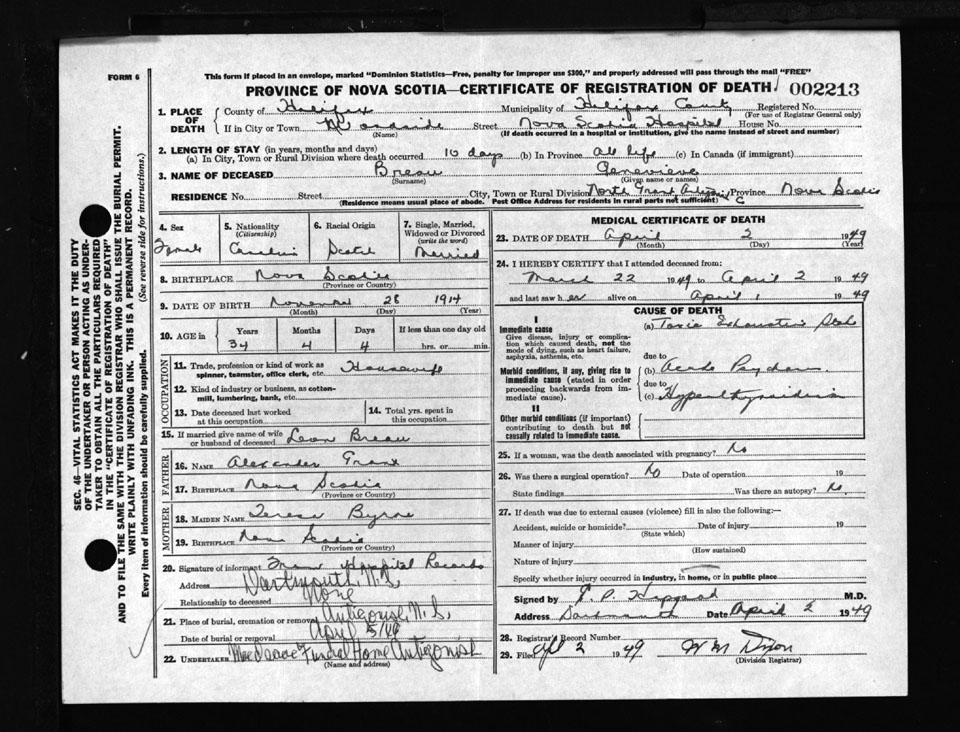 FORM 6
This form if placed in an envelope, marked "Dominion Statistics—Free, penalty for improper use $300," and properly addressed will pass through the mail "FREE"
PROVINCE OF NOVA SCOTIA—CERTIFICATE OF REGISTRATION OF DEATH 002213
1. PLACE OF DEATH
County of Halifax Municipality of Halifax County Registered No.
(For use of Registrar General only)
If in City or Town Woodside Street Nova Scotia Hospital House No.
(Name) (If death occurred in a hospital or institution, give the name instead of street and number)
2. LENGTH OF STAY (in years, months and days)
(a) In City, Town or Rural Division where death occurred 10 days (b) In Province All life (c) In Canada (if immigrant)
3. NAME OF DECEASED Breau Genevieve
(Surname) (Given name or names)
RESIDENCE No. Street City, Town or Rural Division North Grant Province Nova Scotia
(Residence means usual place of abode. Post Office Address for residents in rural parts not sufficient)
4. Sex
5. Nationality
(Citizenship)
6. Racial Origin
7. Single, Married, Widowed or Divorced
(write the word)
Female Canadian Scotch Married
8. BIRTHPLACE Nova Scotia
(Province or Country)
9. DATE OF BIRTH November 28 1914
(Month) (Day) (Year)
10. AGE in
Years Months Days If less than one day old
34 4 4 hrs. or min.
OCCUPATION
11. Trade, profession or kind of work as spinner, teamster, office clerk, etc. Housewife
12. Kind of industry or business, as cotton-mill, lumbering, bank, etc.
13. Date deceased last worked at this occupation
14. Total yrs. spent in this occupation
15. If married give name of wife or husband of deceased Leon Breau
FATHER
16. NAME Alexander Grant
17. BIRTHPLACE Nova Scotia
(Province or Country)
MOTHER
18. MAIDEN NAME Teresa Byrne
19. BIRTHPLACE Nova Scotia
(Province or Country)
20. Signature of informant From Hospital Records
Address Dartmouth, N.S.
Relationship to deceased None
21. Place of burial, cremation or removal Antigonish, N.S.
Date of burial or removal April 5/49
22. UNDERTAKER MacIsaac Funeral Home Antigonish
(Name and address)
MEDICAL CERTIFICATE OF DEATH
23. DATE OF DEATH April 2 1949
(Month) (Day) (Year)
24. I HEREBY CERTIFY that I attended deceased from:
March 22 1949 to April 2 1949
and last saw her alive on April 1 1949
CAUSE OF DEATH
I
Immediate cause
Give disease, injury or complication which caused death, not the mode of dying, such as heart failure, asphyxia, asthenia, etc.
(a) Toxic Exhaustion
due to
Morbid conditions, if any, giving rise to immediate cause (stated in order proceeding backwards from immediate cause).
(b)
due to
(c) Hyperthyroidism
II
Other morbid conditions (if important) contributing to death but not causally related to immediate cause.
25. If a woman, was the death associated with pregnancy? No
26. Was there a surgical operation? No Date of operation 19
State findings Was there an autopsy? No.
27. If death was due to external causes (violence) fill in also the following:—
Accident, suicide or homicide? Date of injury 19
(State which)
Manner of injury
(How sustained)
Nature of injury
Specify whether injury occurred in industry, in home, or in public place
Signed by M.D.
Address Dartmouth Date April 2 1949
28. Registrar's Record Number
29. Filed Apl 2 1949 W M Dixon
(Division Registrar)
SEC. 46—VITAL STATISTICS ACT MAKES IT THE DUTY
OF THE UNDERTAKER OR PERSON ACTING AS UNDER-
TAKER TO OBTAIN ALL THE PARTICULARS REQUIRED
IN THE "CERTIFICATE OF REGISTRATION OF DEATH"
AND TO FILE THE SAME WITH THE DIVISION REGISTRAR WHO SHALL ISSUE THE BURIAL PERMIT.
WRITE PLAINLY WITH UNFADING INK. THIS IS A PERMANENT RECORD.
Every item of information should be carefully supplied. (See reverse side for instructions.)